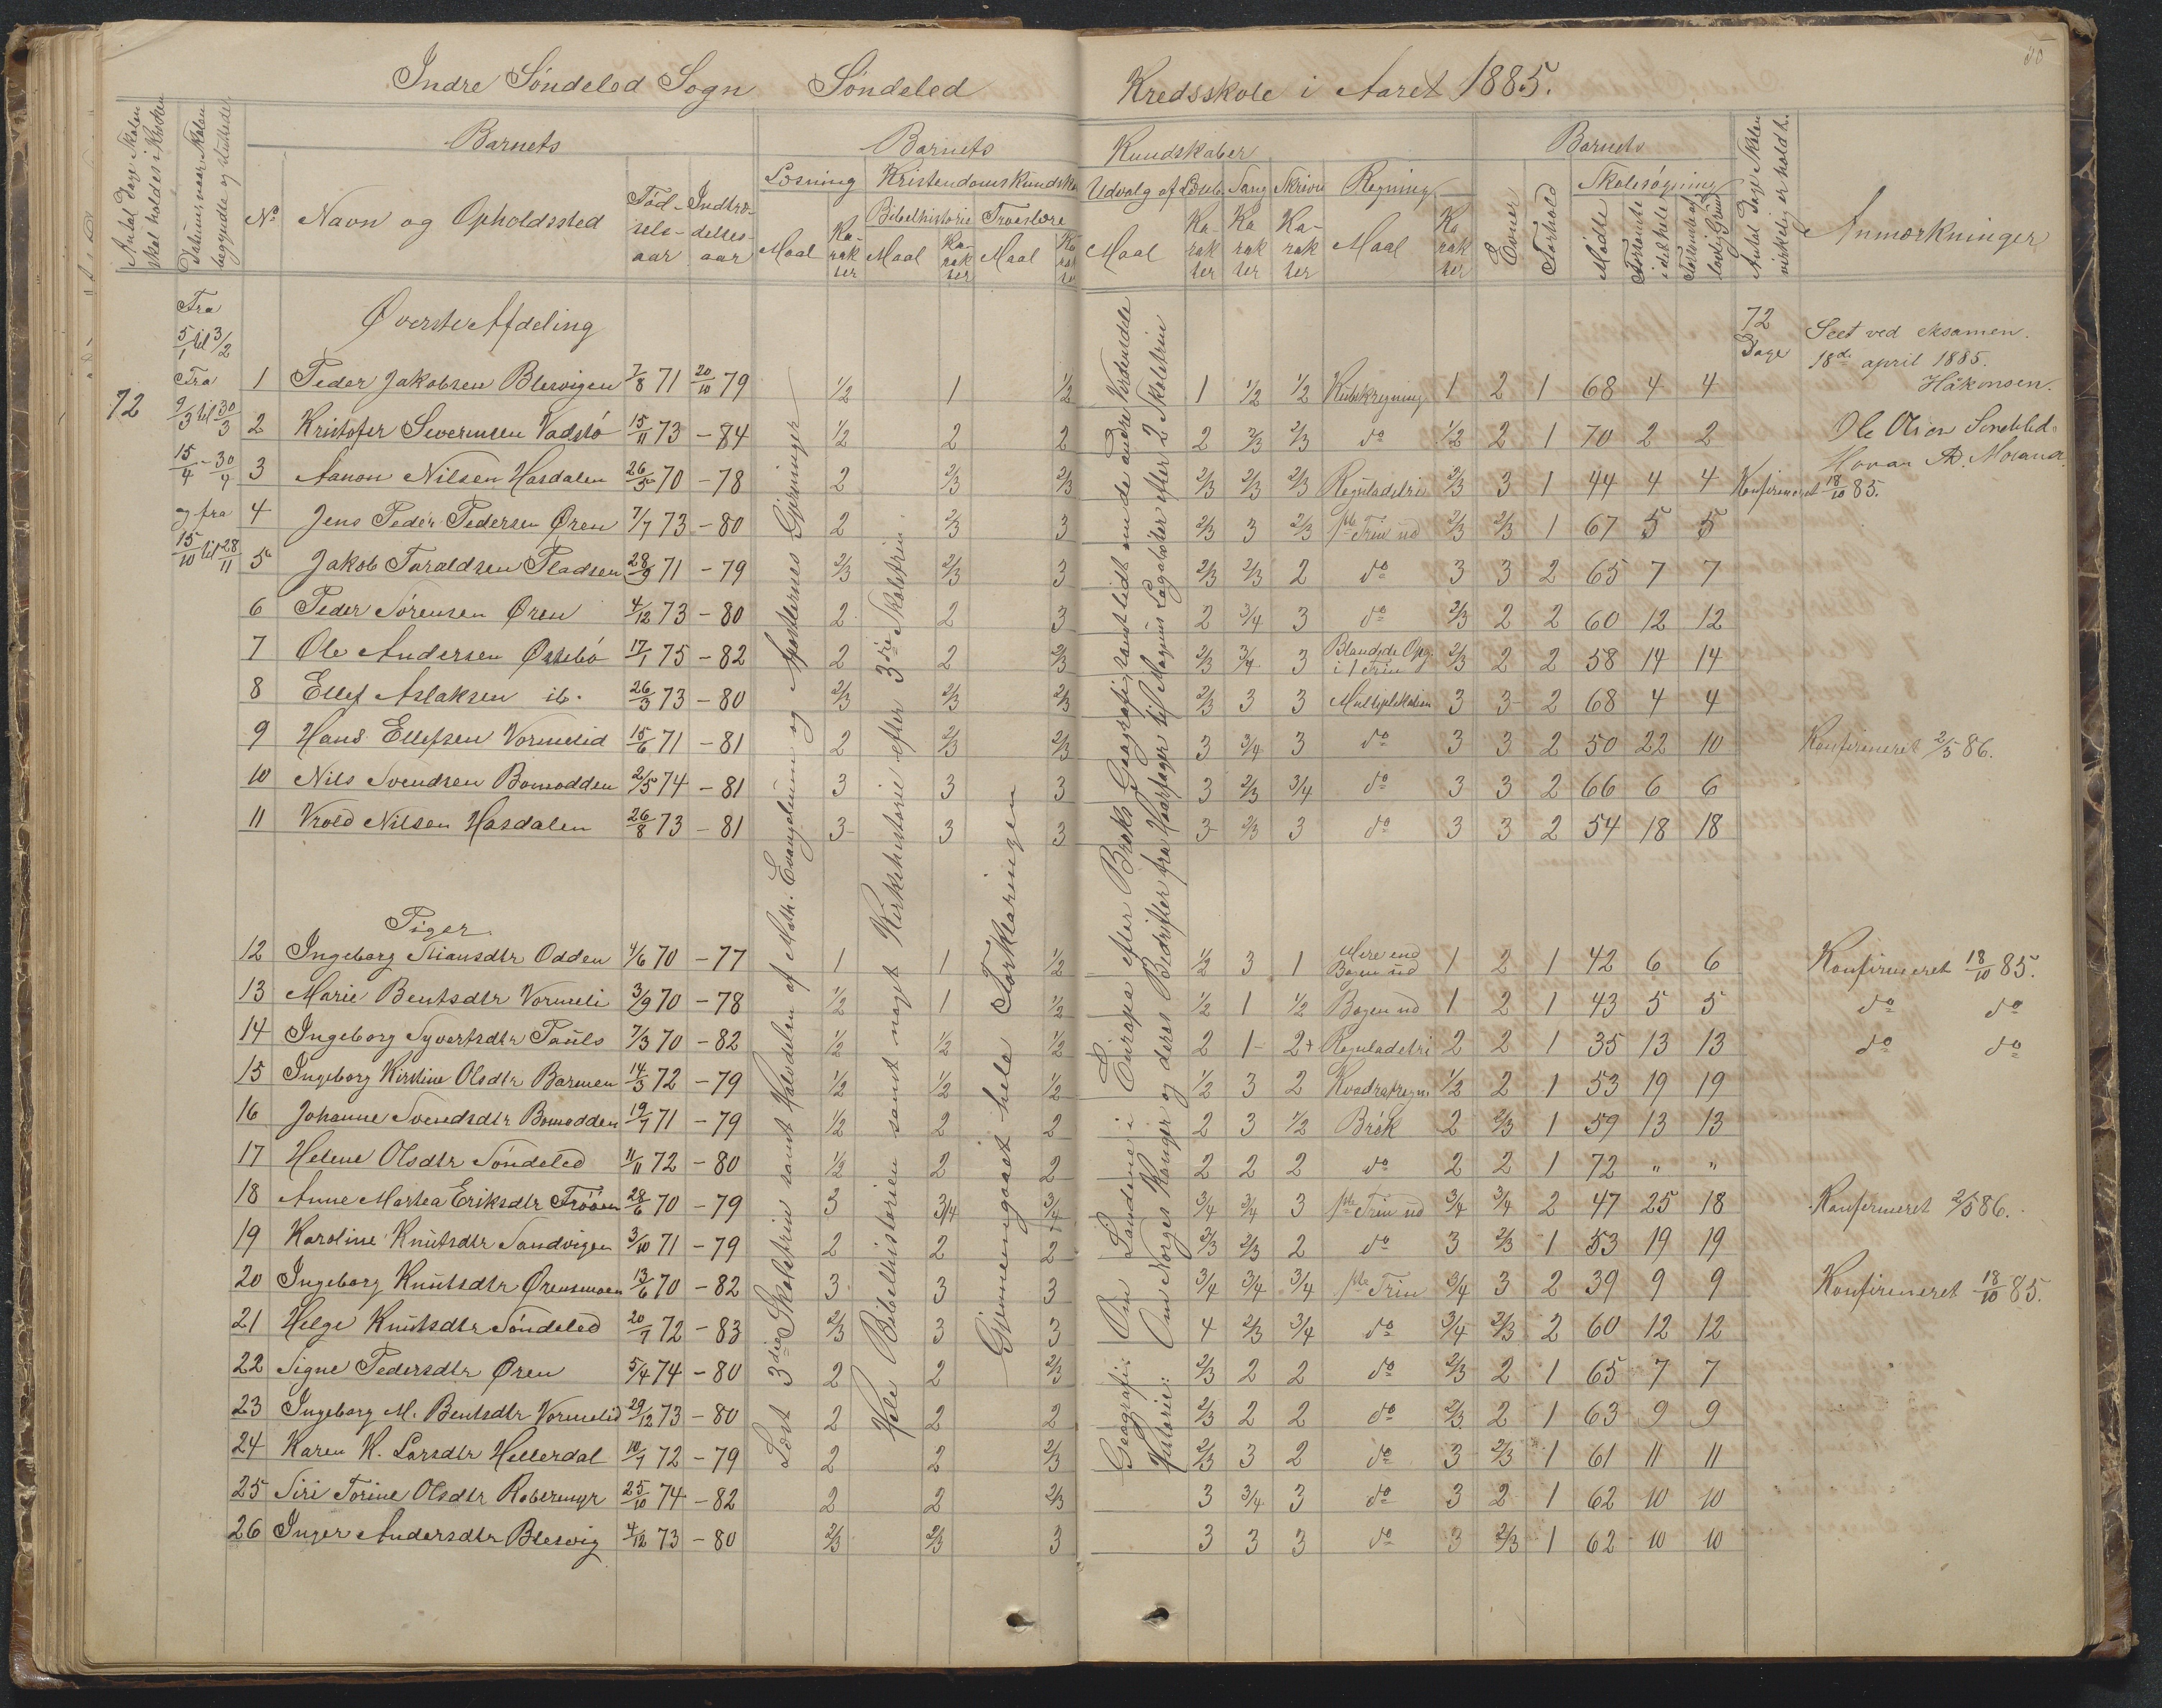 Indre Søndeled Sogn Søndeled Kredsskole i Aaret 1885.
30
Antal Dage Skolen skal holdes i Kredsen
Datum naar Skolen begyndte og sluttedes
Barnets
No Navn og Opholdssted Fødselsaar Indtrædelsesaar
Barnets Kundskaber
Læsning Kristendomskundskab Udvalg af Læseb. Sang Skrivn. Regning
Bibelhistorie Troeslære
Maal Karakter Maal Karakter Maal Karakter Maal Karakter Karakter Karakter Maal Karakter
Barnets
Evner Forhold Skolesøgning
Mødte Forsømte i det hele Forsømte af lovlig Grund
Antal Dage Skolen virkelig er holdt.
Anmærkninger
Fra 5/1 til 3/2
Fra 9/3 til 30/3
15/4 - 30/4
og fra 15/10 til 28/11
72
72 Dage
Seet ved eksamen.
18de april 1885.
Håkonsen.
Øverste Afdeling
1 Peder Jakobsen Blesvigen 7/8 71 20/10 79 1/2 1 1/2 1 1/2 1/2 Kubikregning 1 2 1 68 4 4
2 Kristofer Severinsen Vadstø 15/11 73 - 84 1/2 2 2 2 2/3 2/3 do 1/2 2 1 70 2 2
3 Aanon Nilsen Hasdalen 26/5 70 - 78 2 2/3 2/3 2/3 2/3 2/3 Reguladetri 2/3 3 1 44 4 4 Konfirmeret 18/10 85.
4 Jens Peder Pedersen Øren 7/7 73 - 80 2 2/3 3 2/3 3 2/3 1ste Trin ud 2/3 2/3 1 67 5 5
5 Jakob Taraldsen Pladsen 28/9 71 - 79 2/3 2/3 3 2/3 2/3 2 do 3 3 2 65 7 7
6 Peder Sørensen Øren 4/12 73 - 80 2 2 3 2 3/4 3 do 2/3 2 2 60 12 12
7 Ole Andersen Østebø 17/1 75 - 82 2 2 2/3 2/3 3/4 3 Blandede Opg. i 1 Trin 2/3 2 2 58 14 14
8 Ellef Aslaksen ib. 26/3 73 - 80 2/3 2/3 2/3 2/3 3 3 Multiplikation 3 3 2 68 4 4
9 Hans Ellefsen Vormelid 15/6 71 - 81 2 2/3 2/3 3 3/4 3 do 3 3 2 50 22 10 Konfirmeret 2/5 86.
10 Nils Svendsen Bomodden 2/5 74 - 81 3 3 3 3 2/3 3/4 do 3 3 2 66 6 6
11 Vrold Nilsen Hasdalen 26/8 73 - 81 3 3 3 3 2/3 3 do 3 3 2 54 18 18
Piger
12 Ingeborg Stiansdtr Odden 4/6 70 - 77 1 1 1/2 1/2 3 1 Mere end Bogen ud 1 2 1 42 6 6 Konfirmeret 18/10 85.
13 Marie Bentsdtr Vormeli 3/9 70 - 78 1/2 1 1/2 1/2 1 1/2 Bogen ud 1 2 1 43 5 5 do do
14 Ingeborg Syvertsdtr Pauls 7/3 70 - 82 1/2 1/2 1/2 2 1 2+ Reguladetri 2 2 1 35 13 13 do do
15 Ingeborg Kirstine Olsdtr Barmen 14/3 72 - 79 1/2 1/2 1/2 1/2 3 2 Kvadratregn. 1/2 2 1 53 19 19
16 Johanne Svendsdtr Bomodden 19/7 71 - 79 1/2 2 2 2 3 1/2 Brøk 2 2/3 1 59 13 13
17 Helene Olsdtr Søndeled 11/11 72 - 80 1/2 2 2 2 2 2 do 2 2 1 72 " "
18 Anne Martea Eriksdtr Frøøen 28/6 70 - 79 3 3/4 3/4 3/4 3/4 3 1ste Trin ud 3/4 3/4 2 47 25 18 Konfirmeret 2/5 86.
19 Karoline Knutsdtr Sandvigen 3/10 71 - 79 2 2 2 2/3 2/3 2 do 3 2/3 1 53 19 19
20 Ingeborg Knutsdtr Ørensmoen 13/6 70 - 82 3 3 3 3/4 3/4 3/4 1ste Trin 3/4 3 2 39 9 9 Konfirmeret 18/10 85.
21 Helge Knutsdtr Søndeled 20/7 72 - 83 2/3 3 3 4 2/3 3/4 do 3/4 2/3 2 60 12 12
22 Signe Pedersdtr Øren 5/4 74 - 80 2 2 2/3 2/3 2 2 do 2/3 2 1 65 7 7
23 Ingeborg M. Bentsdtr Vormelid 29/12 73 - 80 2 2 2 2/3 2 2 do 2/3 2 1 63 9 9
24 Karen K. Larsdtr Hellerdal 10/7 72 - 79 2 2 2/3 2/3 3 2 do 3 2/3 1 61 11 11
25 Siri Torine Olsdtr Røbermyr 25/10 74 - 82 2 2 2/3 3 3/4 3 do 3 2 1 62 10 10
26 Inger Andersdtr Blesvig 4/12 73 - 80 2/3 2/3 3 3 3 3 do 3 2/3 1 62 10 10
Læst 3die Skoletrin samt Halvdelen af Math. Evangelium og Apostlernes Gjerninger
Hele Bibelhistorien samt noget Kirkehistorie efter 3die Skoletrin.
Gjennemgaaet hele Forklaringen
Geografi: Om Landene i Europa efter Broks Geografi, samt lidt om de andre Verdensdele
Historie: Om Norges Konger og deres Bedrifter fra Haarfager til Magnus Lagabøter efter 2 Skoletrin